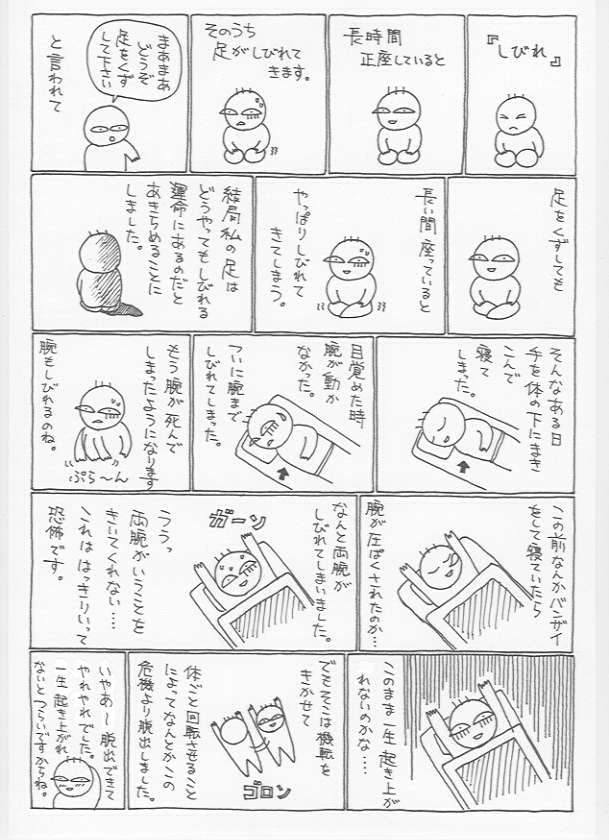 『しびれ』
長時間
正座していると
そのうち
足がしびれて
きます。
まあまあ
どうぞ
足をくず
して下さい
と言われて
足をくずしても
長い間座っていると
やっぱりしびれて
きてしまう。
結局私の足は
どうやってもしびれる
運命にあるのだと
あきらめることに
しました。
そんなある日
手を体の下にまき
こんで
寝て
しまった。
目覚めた時
腕が動か
なかった。
ついに腕まで
しびれてしまった。
もう腕が死んで
しまったようになります
ぷら〜ん
腕もしびれるのね。
この前なんかバンザイ
をして寝ていたら
腕が圧ぱくされたのか…
なんと両腕が
しびれてしまいました。
ガーン
ううっ
両腕がいうことを
きいてくれない…
これははっきりいって
恐怖です。
このまま一生起き上が
れないのかな…
でもそこは機転を
きかせて
ゴロン
体ごと回転させること
によってなんとかこの
危機より脱出しました。
いやあ〜脱出できて
やれやれでした。
一生起き上がれ
ないとつらいですからね。